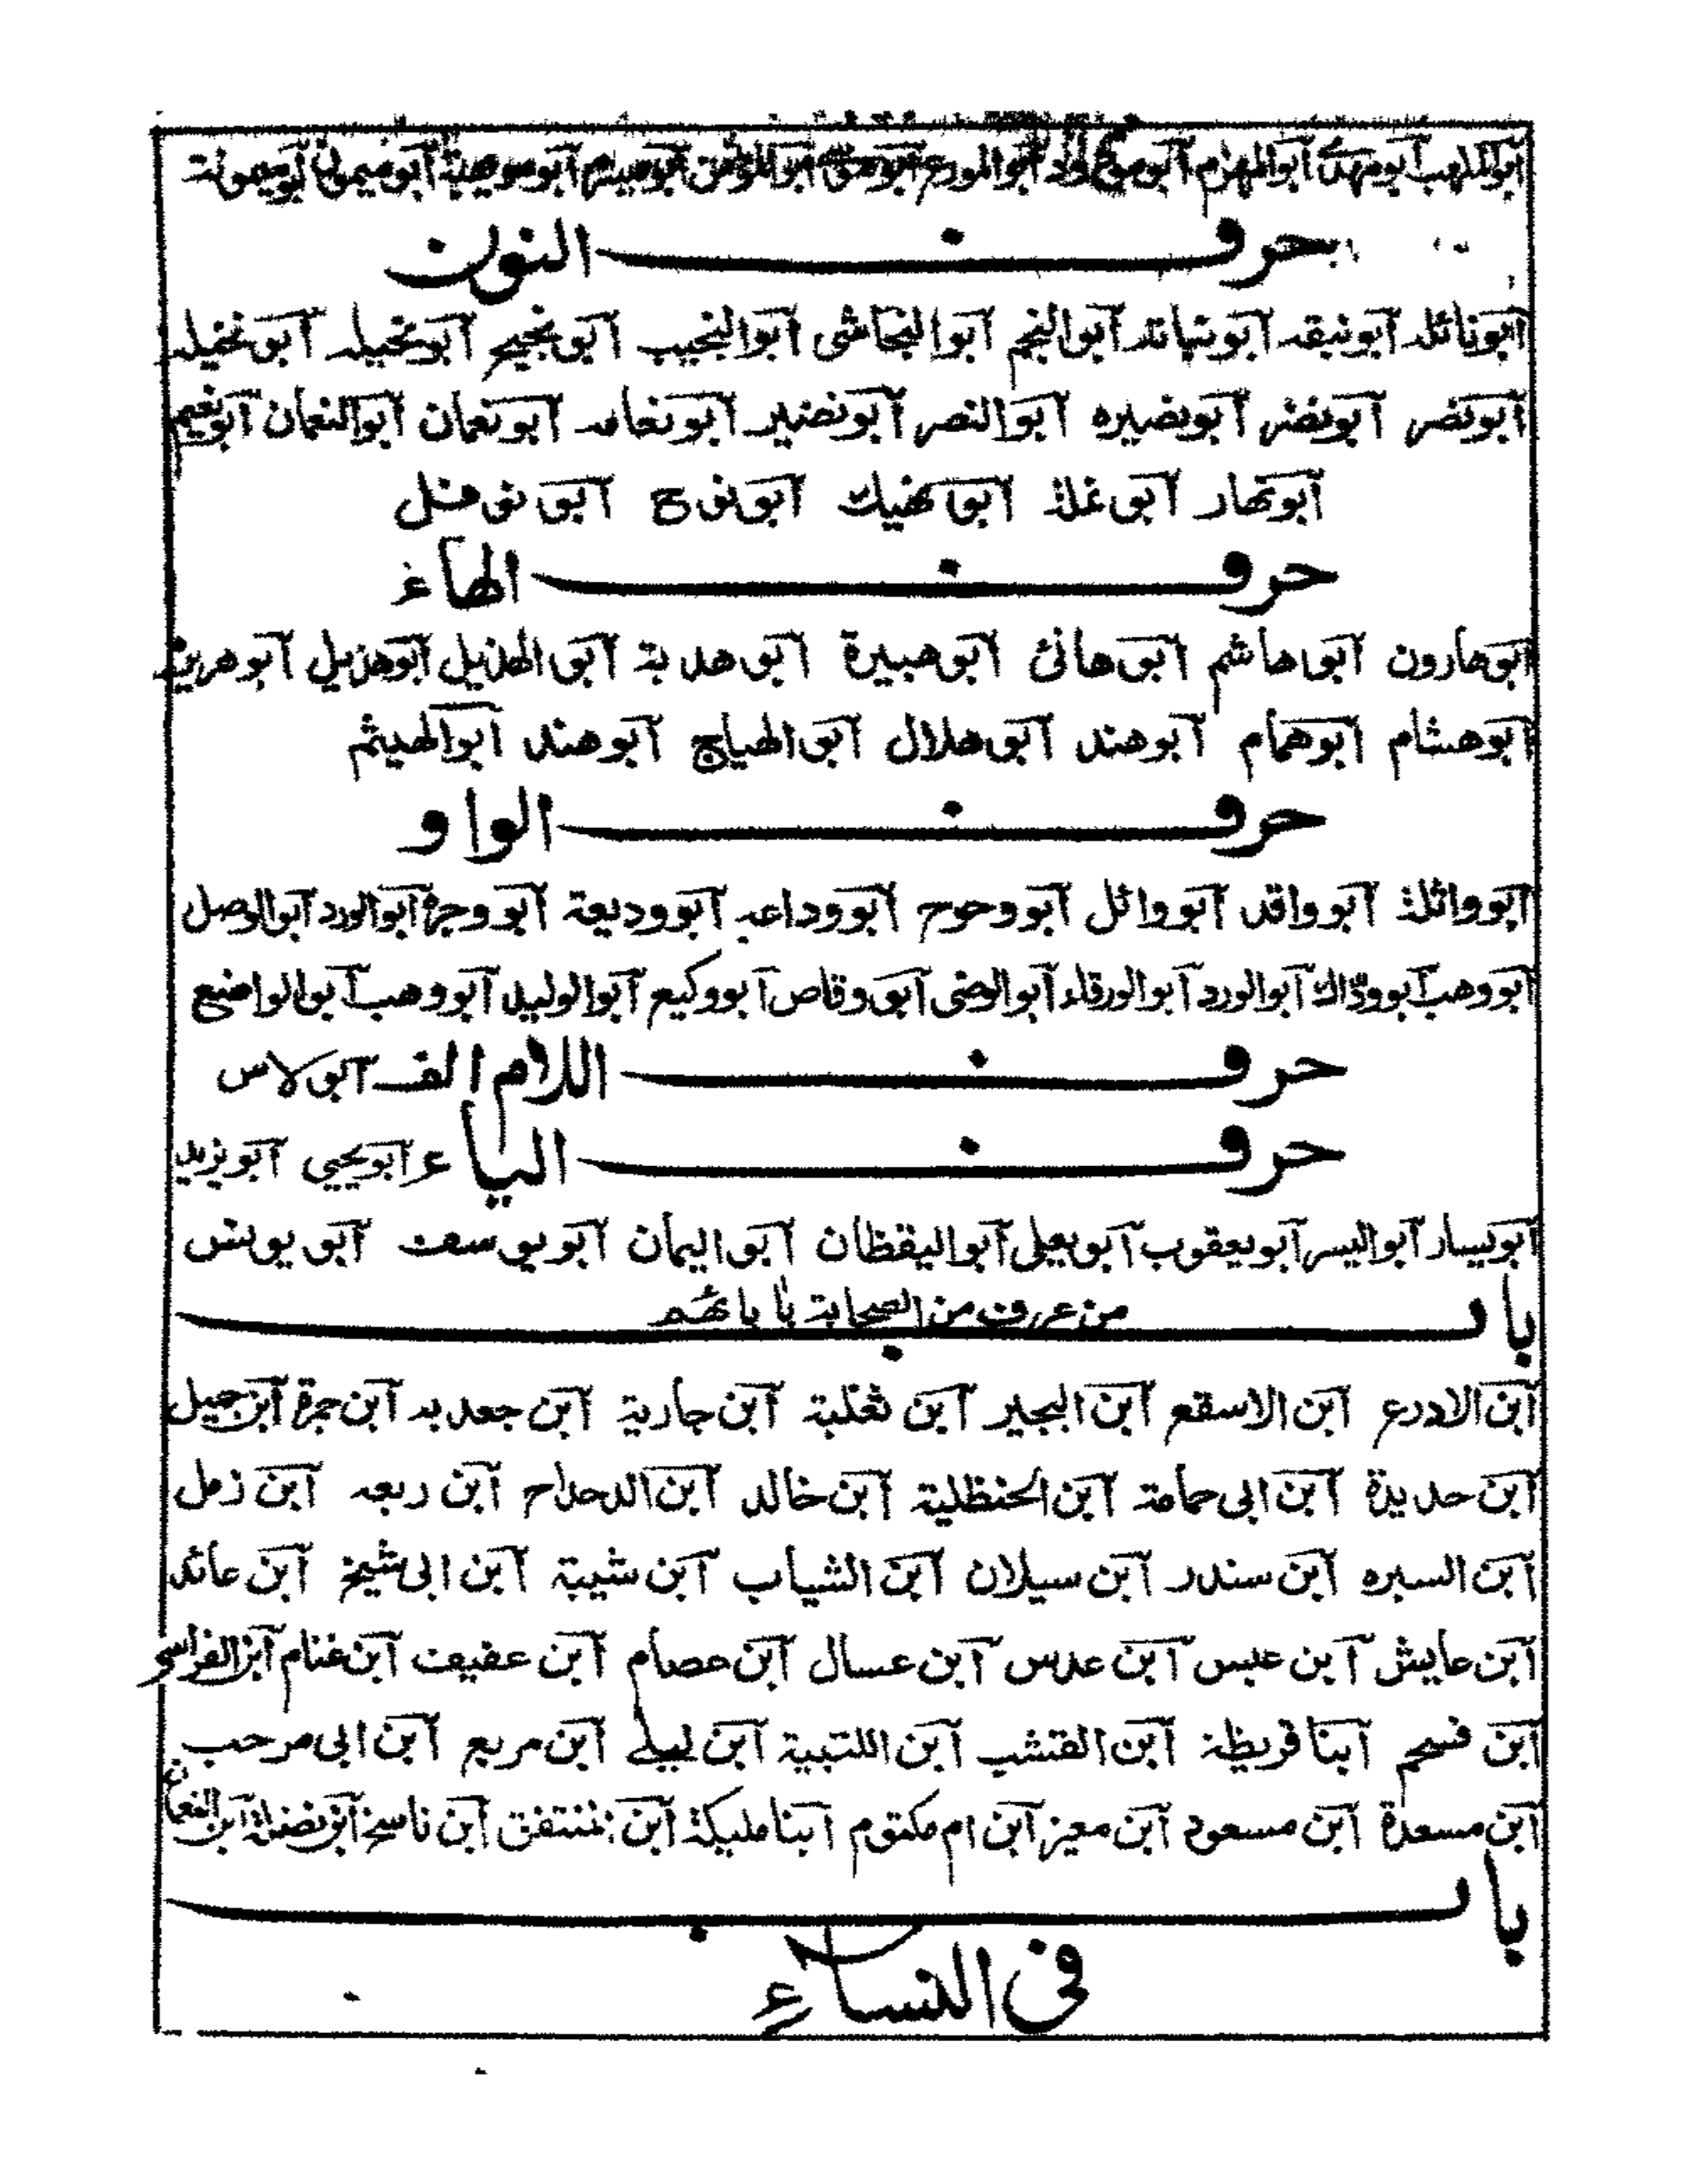 ابوالمذهب ابومهدى ابوالمهزم ابوالمورع ابوالمؤمن ابوميسره ابوموهبة ابوميمون ابوميمونة
حرف النون
ابونائله ابونبقه ابونباته ابوالنجم ابوالنجاشى ابوالنجيب ابونجيح ابونخيله ابونخيله
ابونضر ابونضره ابونضيره ابوالنضر ابونضير ابونعامه ابونعمان ابوالنعمان ابونعيم
ابونهار ابونملة ابونهيك ابونوح ابونوفل
حرف الهاء
ابوهارون ابوهاشم ابوهانئ ابوهبيرة ابوهدبة ابوالهذيل ابوهذيل ابوهريرة
ابوهشام ابوهمام ابوهند ابوهلال ابوالهياج ابوهند ابوالهيثم
حرف الواو
ابوواثلة ابوواقد ابووائل ابووحوح ابووداعه ابووديعة ابووجزة ابوالورد ابوالوصل
ابووهب ابووداك ابوالورد ابوالورقاء ابوالوضى ابووقاص ابووكيع ابوالوليد ابووهب ابوالواضع
حرف اللام الف ابولاس
حرف الياء ابويحيى ابويزيد
ابويسار ابواليسر ابويعقوب ابويعلى ابواليقظان ابواليمان ابويوسف ابويونس
باب من عرف من الصحابة بابائهم
ابن الادرع ابن الاسقع ابن البجير ابن ثعلبة ابن جارية ابن جعدبه ابن جمرة ابن جميل
ابن حديدة ابن ابى حمامة ابن الحنظلية ابن خالد ابن الدحداح ابن ربعه ابن زمل
ابن السبره ابن سندر ابن سيلان ابن الشياب ابن شيبة ابن ابى شيخ ابن عائد
ابن عايش ابن عبس ابن عدس ابن عسال ابن عصام ابن عفيف ابن غنام ابن الفراسى
ابن فسحم ابنا قريظة ابن القشب ابن اللتبية ابن ليلى ابن مربع ابن ابى مرحب
ابن مسعدة ابن مسعود ابن معيز ابن ام مكتوم ابنا مليكة ابن المنتفق ابن ناسخ ابن نضلة ابن النعمان
باب
فى النساء